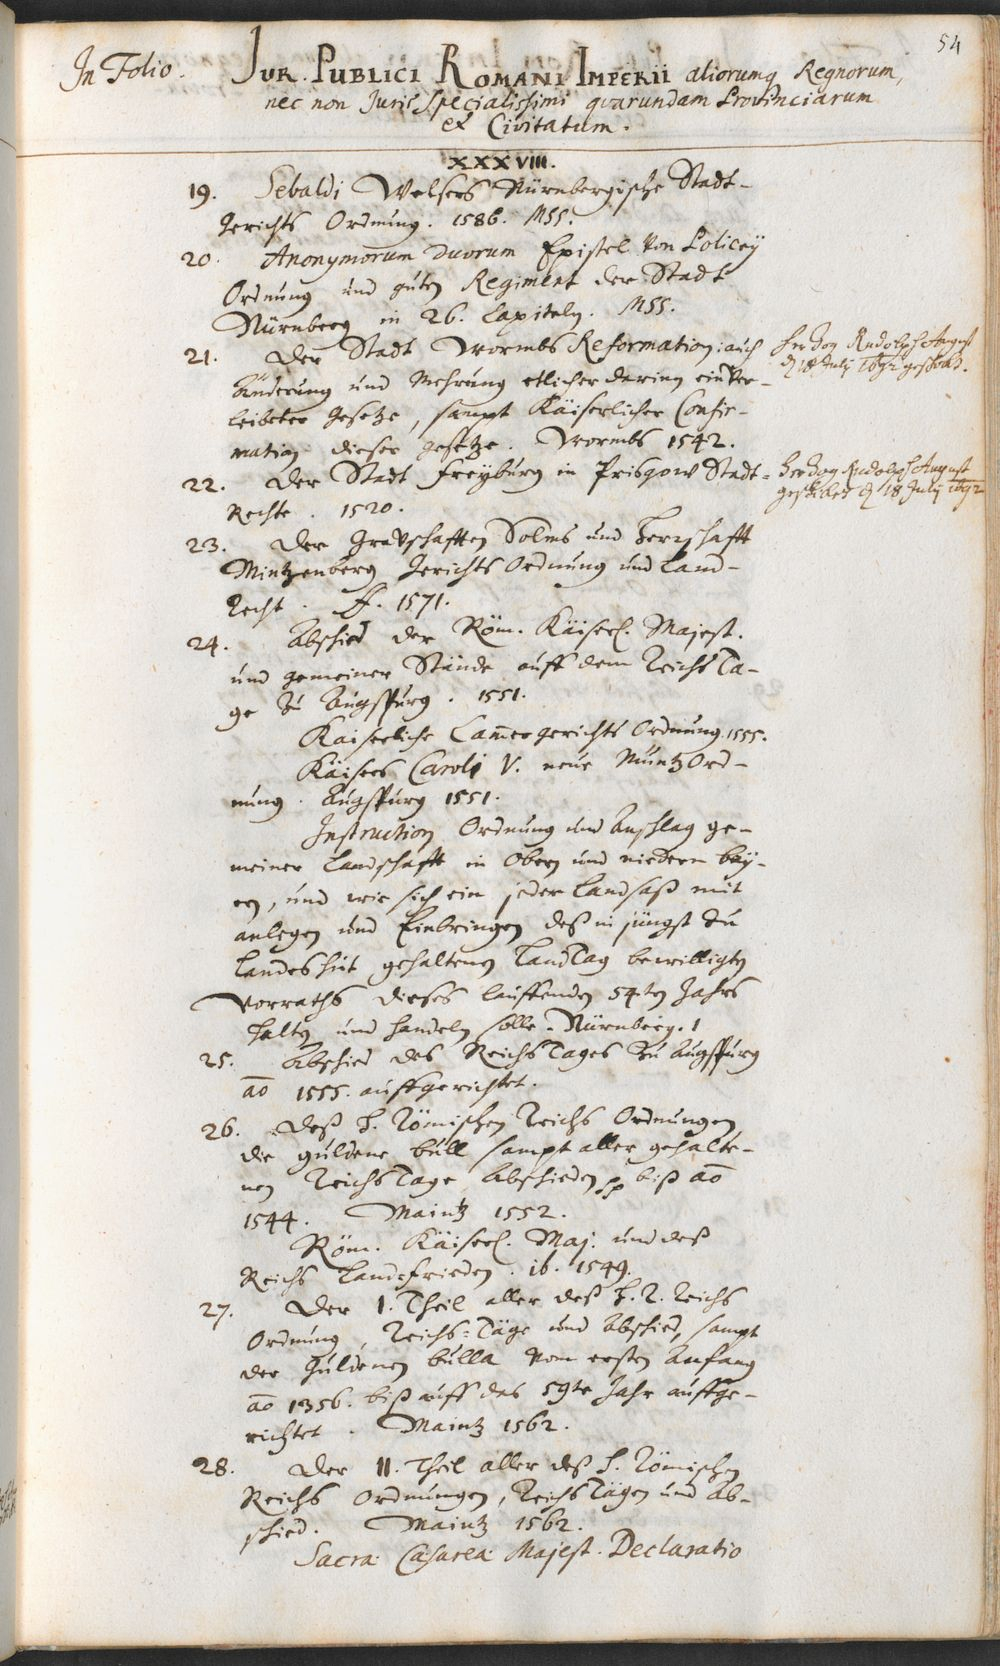 54
In Folio. Jur. Publici Romani Imperii aliorumq Regnorum,
nec non Juris specialissimi qvarundam Provinciarum
et Civitatum.
XXXVIII.
19. Sebaldi Welsers Nürnbergische Stadt-
Gerichts Ordnung. 1586. MSS.
20. Anonymorum duorum Epistel von Policeÿ
Ordnung und guten Regiment der Stadt
Nürnberg in 26. Capiteln. MSS.
21. Der Stadt Wormbs Reformation: auch
änderung und Mehrung etlicher darein einver-
leibeter Gesetze, sampt Käiserlicher Confir-
mation dieser gesetze. Wormbs 1542.
Herzog Rudolph August
d 18 July 1692 geschickt.
22. Der Stadt Freyburg in Prisgow Stadt-
Rechte. 1520.
Herzog Rudolph August
geschicket d 18 July 1692
23. Der Gravschafften Solms und Herrschafft
Mintzenberg Gerichts Ordnung und Land-
Recht. F. 1571.
24. Abschied der Röm. Käiserl. Majest.
und gemeiner Stände auff dem Reichs Ta-
ge zu Augspurg. 1551.
Kaiserliche Cam̄ergerichts Ordnung. 1555.
Käisers Caroli V. neue Müntz Ord-
nung. Augspurg 1551.
Instruction Ordnung und Anschlag ge-
meiner Landschafft in Obern und niedern bäy-
ern, und wie sich ein jeder Landsaß mit
anlegen und Einbringen deß in jüngst zu
Landeshut gehaltenen LandTag bewilligten
Vorraths dieses lauffenden 54ten Jahrs
halten und handeln solle. Nürnberg. 1
25. Abschied des ReichsTages zu Augspurg
ao 1555. auffgerichtet.
26. Deß H. Römischen Reichs Ordnungen
die guldene bull sampt aller gehalte-
nen ReichsTage Abschieden pp biß ao
1544. Maintz 1552.
Röm. Käiserl. Maj. und deß
Reichs Landfrieden. ib. 1549.
27. Der I. Theil aller deß H. R. Reichs
Ordnung, Reichs-Täge und Abschied, sampt
der Guldenen bulla vom ersten Anfang
ao 1356. biß auff das 59te Jahr auffge-
richtet. Maintz 1562.
28. Der II. Theil aller deß H. Römischen
Reichs Ordnungen, ReichsTägen und Ab-
schied. Maintz 1562.
Sacra Cæsarea Majest. Declaratio